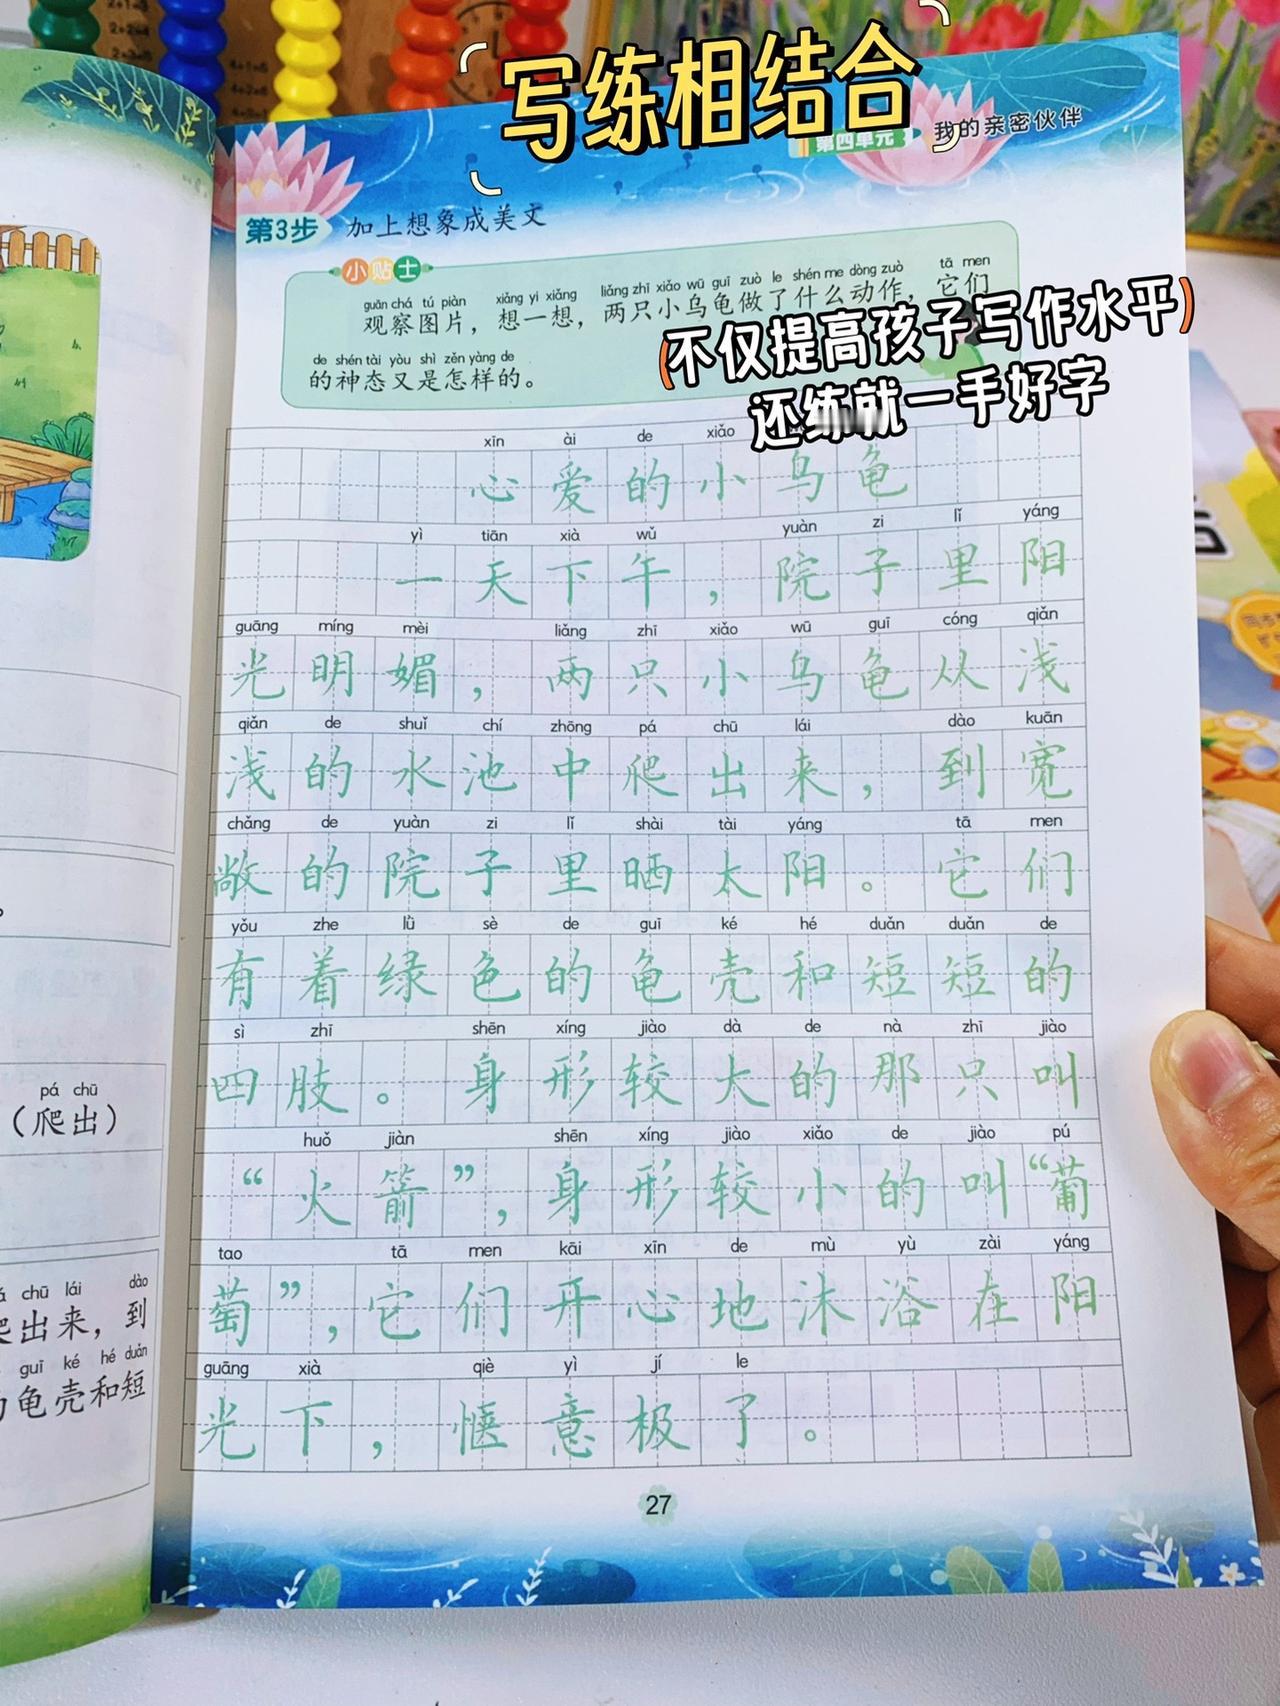 写练相结合
第四单元 我的亲密伙伴
第3步 加上想象成美文
小贴士
guān chá tú piàn xiǎng yi xiǎng liǎng zhī xiǎo wū guī zuò le shén me dòng zuò tā men
观察图片，想一想，两只小乌龟做了什么动作，它们
de shén tài yòu shì zěn yàng de
的神态又是怎样的。
不仅提高孩子写作水平
还练就一手好字
xīn ài de xiǎo
心爱的小乌龟
yì tiān xià wǔ yuàn zi lǐ yáng
一天下午，院子里阳
guāng míng mèi liǎng zhī xiǎo wū guī cóng qiǎn
光明媚，两只小乌龟从浅
qiǎn de shuǐ chí zhōng pá chū lái dào kuān
浅的水池中爬出来，到宽
chǎng de yuàn zi lǐ shài tài yáng tā men
敞的院子里晒太阳。它们
yǒu zhe lǜ sè de guī ké hé duǎn duǎn de
有着绿色的龟壳和短短的
sì zhī shēn xíng jiào dà de nà zhī jiào
四肢。身形较大的那只叫
huǒ jiàn shēn xíng jiào xiǎo de jiào pú
“火箭”，身形较小的叫“葡
tao tā men kāi xīn de mù yù zài yáng
萄”，它们开心地沐浴在阳
guāng xià qiè yì jí le
光下，惬意极了。
27
pá chū
（爬出）
chū lái dào
出来，到
guī ké hé duǎn
龟壳和短